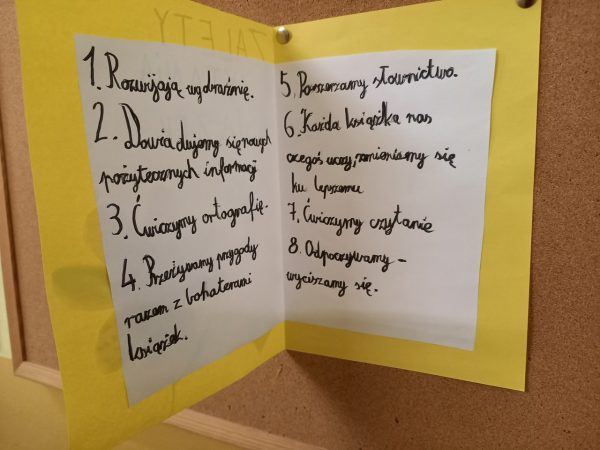 ZALETY
1. Rozwijają wyobraźnię.
2. Dowiadujemy się nowych
pożytecznych informacji
3. Ćwiczymy ortografię.
4. Przeżywamy przygody
razem z bohaterami
książek.
5. Poszerzamy słownictwo.
6. Każda książka nas
czegoś uczy, zmieniamy się
ku lepszemu
7. Ćwiczymy czytanie
8. Odpoczywamy –
wyciszamy się.